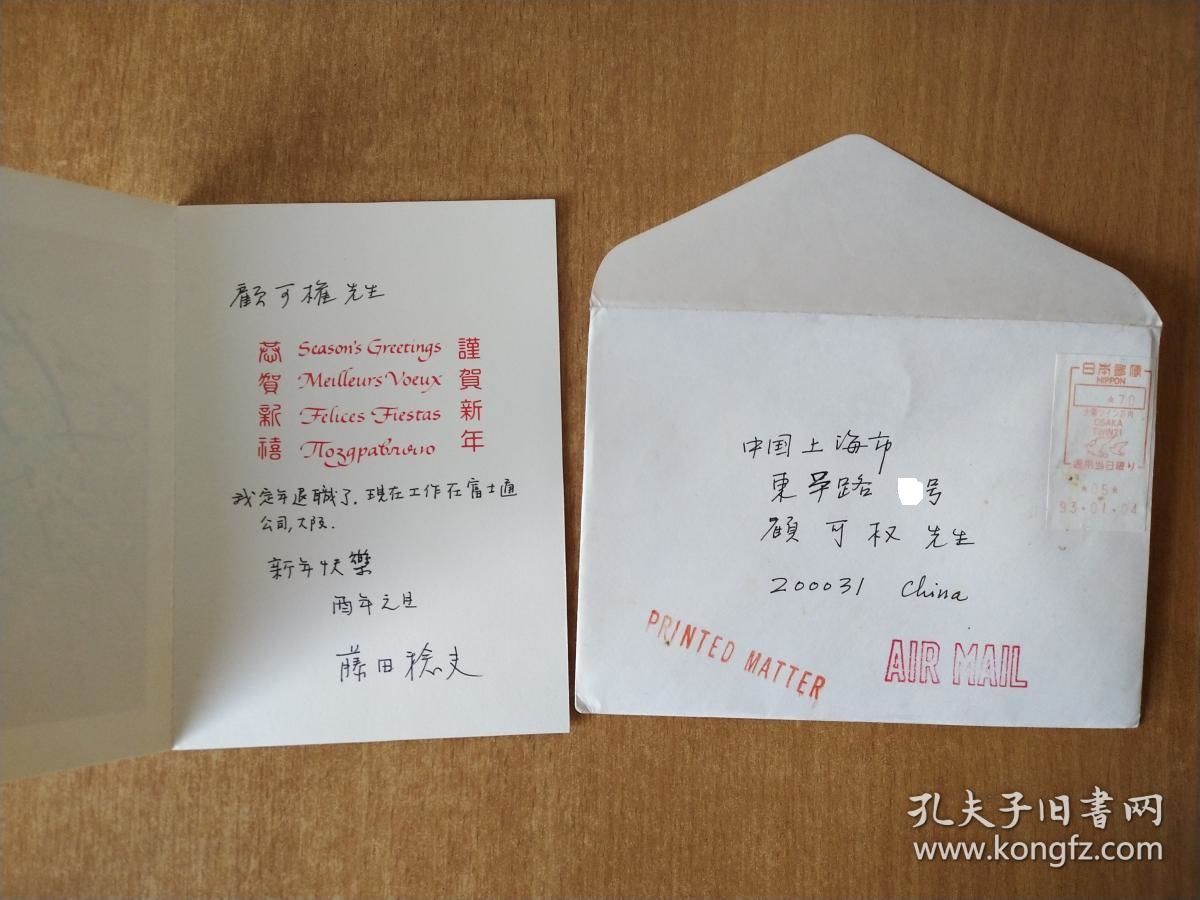 顧可權先生
恭賀新禧
Season's Greetings
Meilleurs Voeux
Felices Fiestas
Поздравляю
謹賀新年
我定年退職了.現在工作在富士通
公司,大阪.
新年快樂
酉年元旦
藤田稔夫
中国上海市
東平路 号
顧可权先生
200031 China
PRINTED MATTER
AIR MAIL
日本郵便
NIPPON
*70
大阪ツイン21内
OSAKA
TWIN21
適用当日限り
*05*
93.01.04
孔夫子旧书网
www.kongfz.com